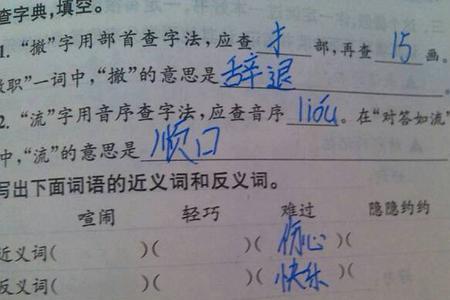 查字典,填空。
1. “撤”字用部首查字法,应查 扌 部,再查 15 画。
撤职”一词中,“撤”的意思是 辞退
2. “流”字用音序查字法,应查音序 lióu。在“对答如流”
中,“流”的意思是 顺口
写出下面词语的近义词和反义词。
喧闹 轻巧 难过 隐隐约约
近义词( )( )( 伤心 )(
反义词( )( )( 快乐 )(